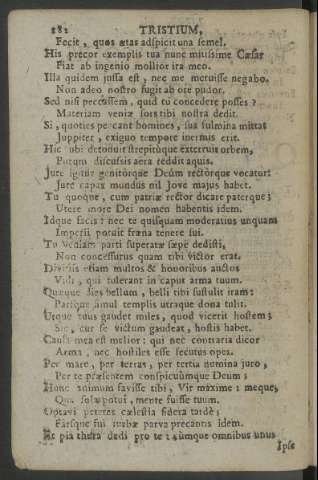 282 TRISTIUM,
Fecit, quos ætas adspicit una semel.
His precor exemplis tua nunc mitissime Cæsar
Fiat ab ingenio mollior ira meo.
Illa quidem justa est, nec me meruisse negabo.
Non adeo nostro fugit ab ore pudor.
Sed nisi peccassem, quid tu concedere posses?
Materiam veniæ sors tibi nostra dedit.
Si, quoties peccant homines, sua fulmina mittat
Juppiter, exiguo tempore inermis erit.
Hic ubi detonuit strepituque exterruit orbem,
Purum discussis aera reddit aquis.
Jure igitur genitorque Deûm rectorque vocatur:
Jure capax mundus nil Jove majus habet.
Tu quoque, cum patriæ rector dicare paterque;
Utere more Dei nomen habentis idem.
Idque facis: nec te quisquam moderatius unquam
Imperii potuit fræna tenere sui.
Tu veniam parti superatæ sæpe dedisti,
Non concessurus quam tibi victor erat.
Divitiis etiam multos & honoribus auctos
Vidi, qui tulerant in caput arma tuum.
Quæque dies bellum, belli tibi sustulit iram:
Parsque simul templis utraque dona tulit.
Utque tuus gaudet miles, quod vicerit hostem;
Sic, cur se victum gaudeat, hostis habet.
Causa mea est melior: qui nec contraria dicor
Arma, nec hostiles esse secutus opes.
Per mare, per terras, per tertia numina juro,
Per te præsentem conspicuumque Deum;
Hunc animum favisse tibi, Vir maxime: meque,
Qua sola potui, mente fuisse tuum.
Optavi peteres cælestia sidera tardè;
Parsque fui turbæ parva precantis idem.
Et pia thura dedi pro te: cùmque omnibus unus
Ipse